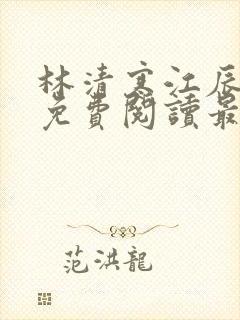 林清寒江辰
免費閱讀最
范洪龍